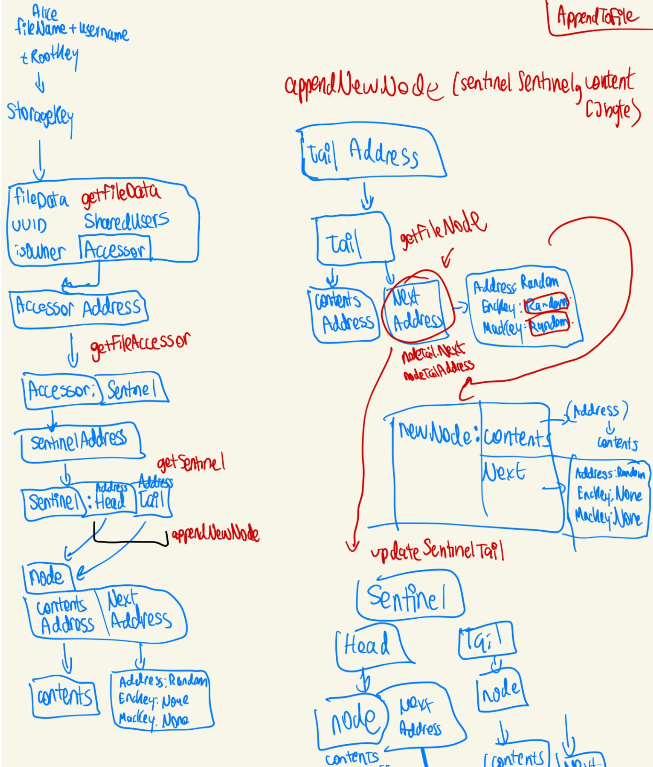 Alice
fileName + username
+ RootKey
StorageKey
fileData getFileData
UUID SharedUsers
isOwner Accessor
Accessor Address
getFileAccessor
Accessor: Sentinel
SentinelAddress
getSentinel
Address Address
Sentinel: Head Tail
appendNewNode
node
contents Next
Address Address
contents
Address: Random
Enckey: None
Mackey: None
AppendToFile
appendNewNode (sentinel Sentinel, content
[]byte)
Tail Address
Tail
getFileNode
contents
Address
Next
Address
Address: Random
Enckey: Random
Mackey: Random
nodeTail.Next
nodeTailAddress
newNode: contents
(Address)
contents
Next
Address: Random
Enckey: None
Mackey: None
updateSentinelTail
Sentinel
Head
Tail
node
Next
Address
node
contents
contents